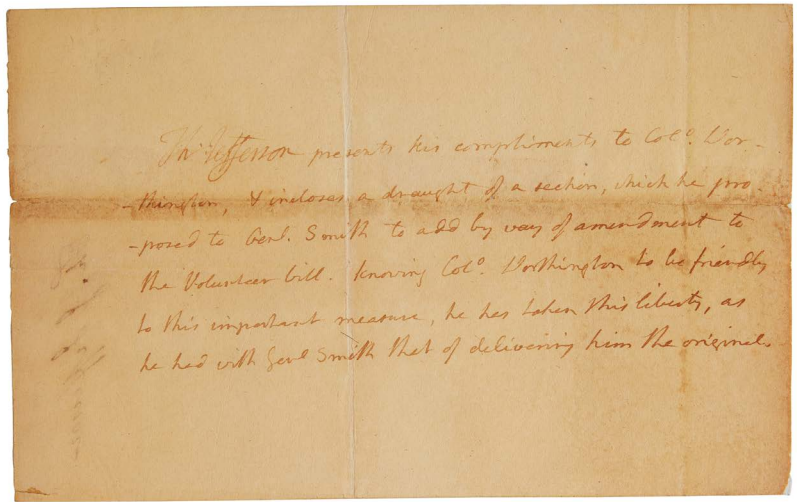 Th: Jefferson presents his compliments to Colº. Wor-
-thington, & incloses a draught of a section, which he pro-
-posed to Genl. Smith to add by way of amendment to
the Volunteer bill. knowing Colº. Worthington to be friendly
to this important measure, he has taken this liberty, as
he had with Genl Smith that of delivering him the original.